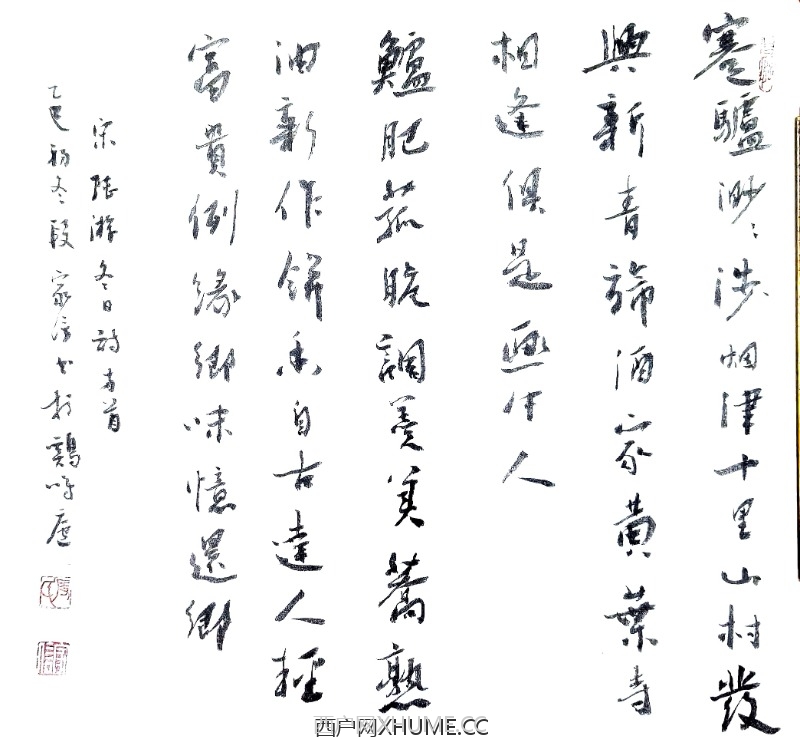 蹇驢渺渺涉烟津十里山村發
興新青旆酒家黃葉寺
相逢俱是畫中人
鱸肥菰脆調羹美蕎熟
油新作餅香自古達人輕
富貴例緣鄉味憶還鄉
宋陸游冬日詩首
乙巳初冬段家 書於 鳴廬
西户网XHUME.CC